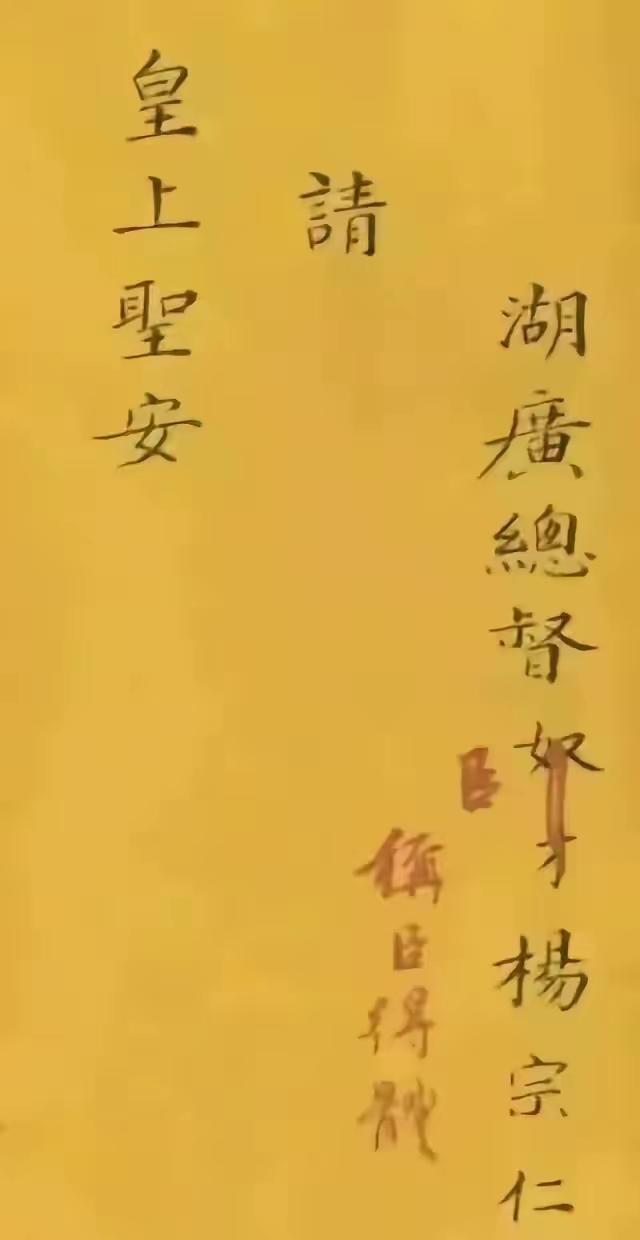 湖廣總督奴才楊宗仁
臣
稱臣得體
請
皇上聖安